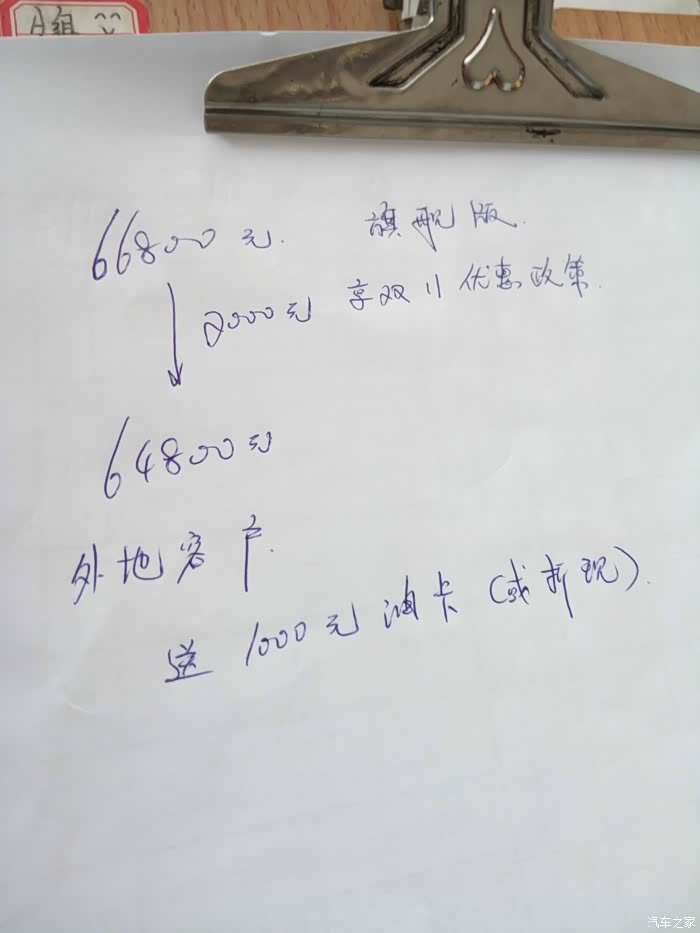 A组
66800元. 旗舰版.
2000元 享双11优惠政策.
64800元
外地客户.
送 1000元油卡(或折现).
汽车之家